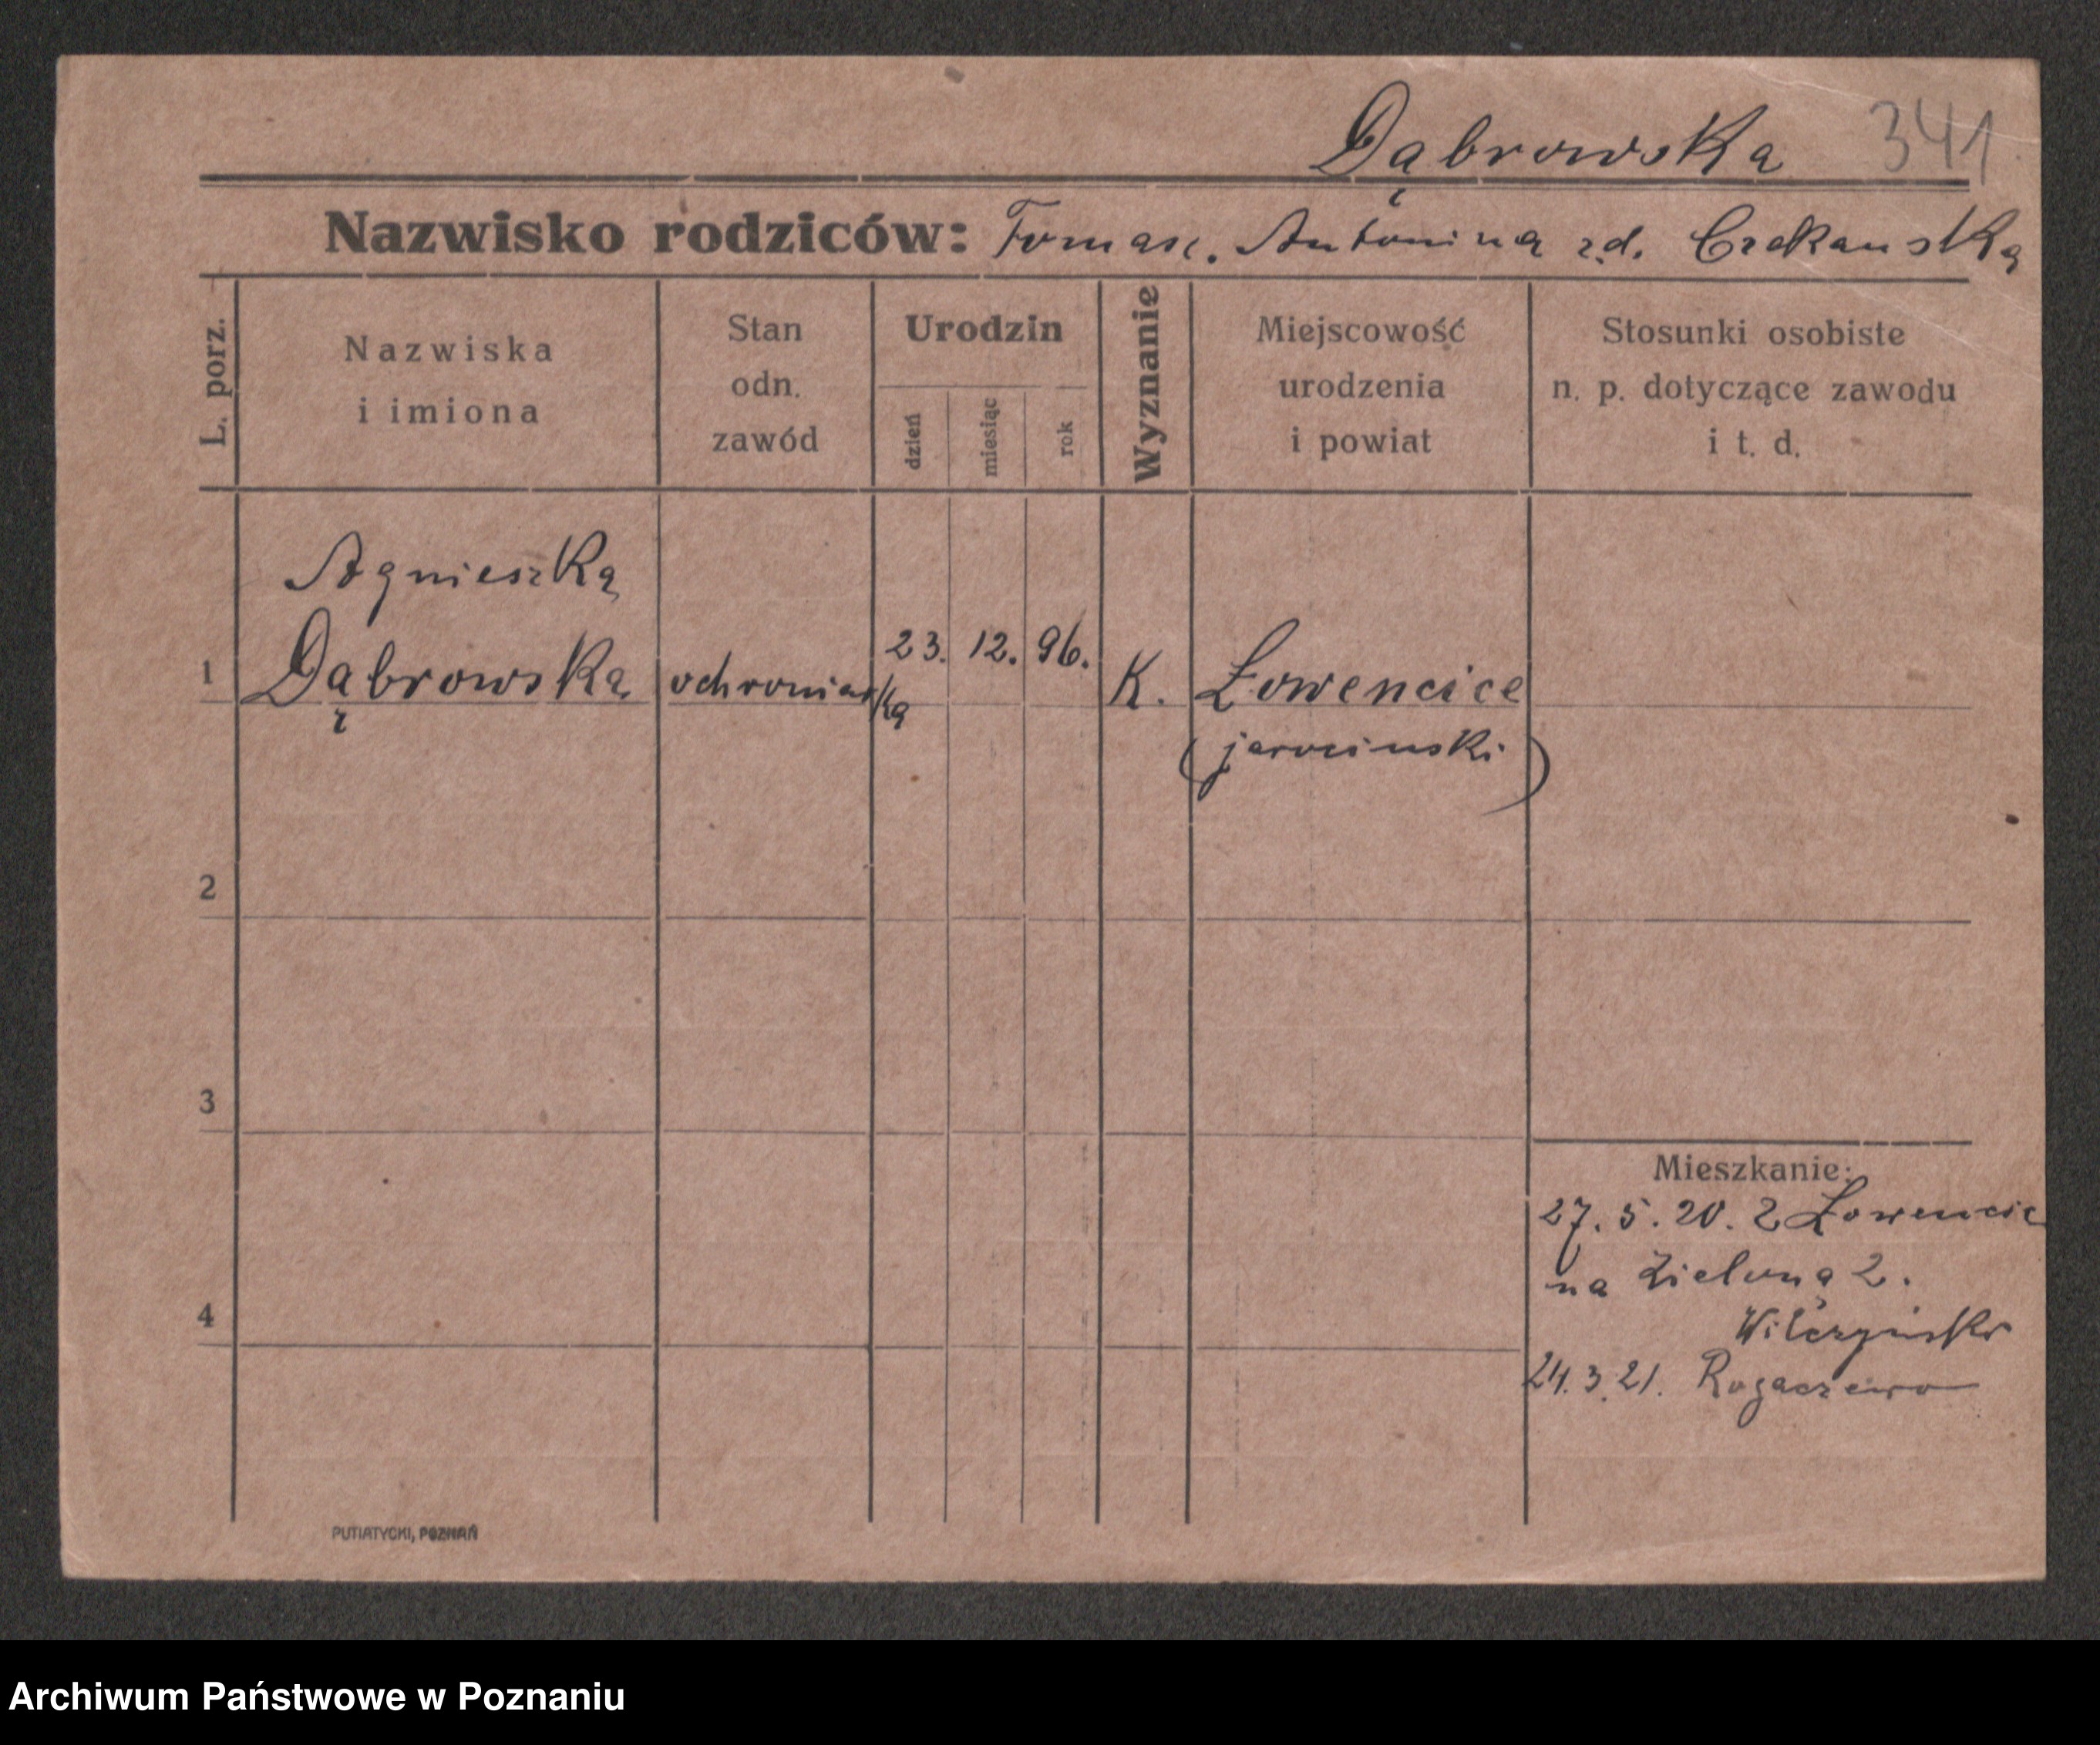 Dąbrowska 341
Nazwisko rodziców: Tomasz. Antonina zd. Czekanska
L. porz.
Nazwiska
i imiona
Stan
odn.
zawód
Urodzin
dzień
miesiąc
rok
Wyznanie
Miejscowość
urodzenia
i powiat
Stosunki osobiste
n. p. dotyczące zawodu
i t. d.
Agnieszka
1 Dąbrowska ochroniarka 23. 12. 96. K. Łowencice
(jarocinski)
2
3
4
Mieszkanie:
27. 5. 20. z Łowencic
na Zieloną 2.
24. 3. 21. Rogaczewo
PUTIATYCKI, POZNAŃ
Archiwum Państwowe w Poznaniu